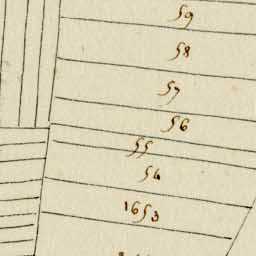 59
58
57
56
55
54
1653